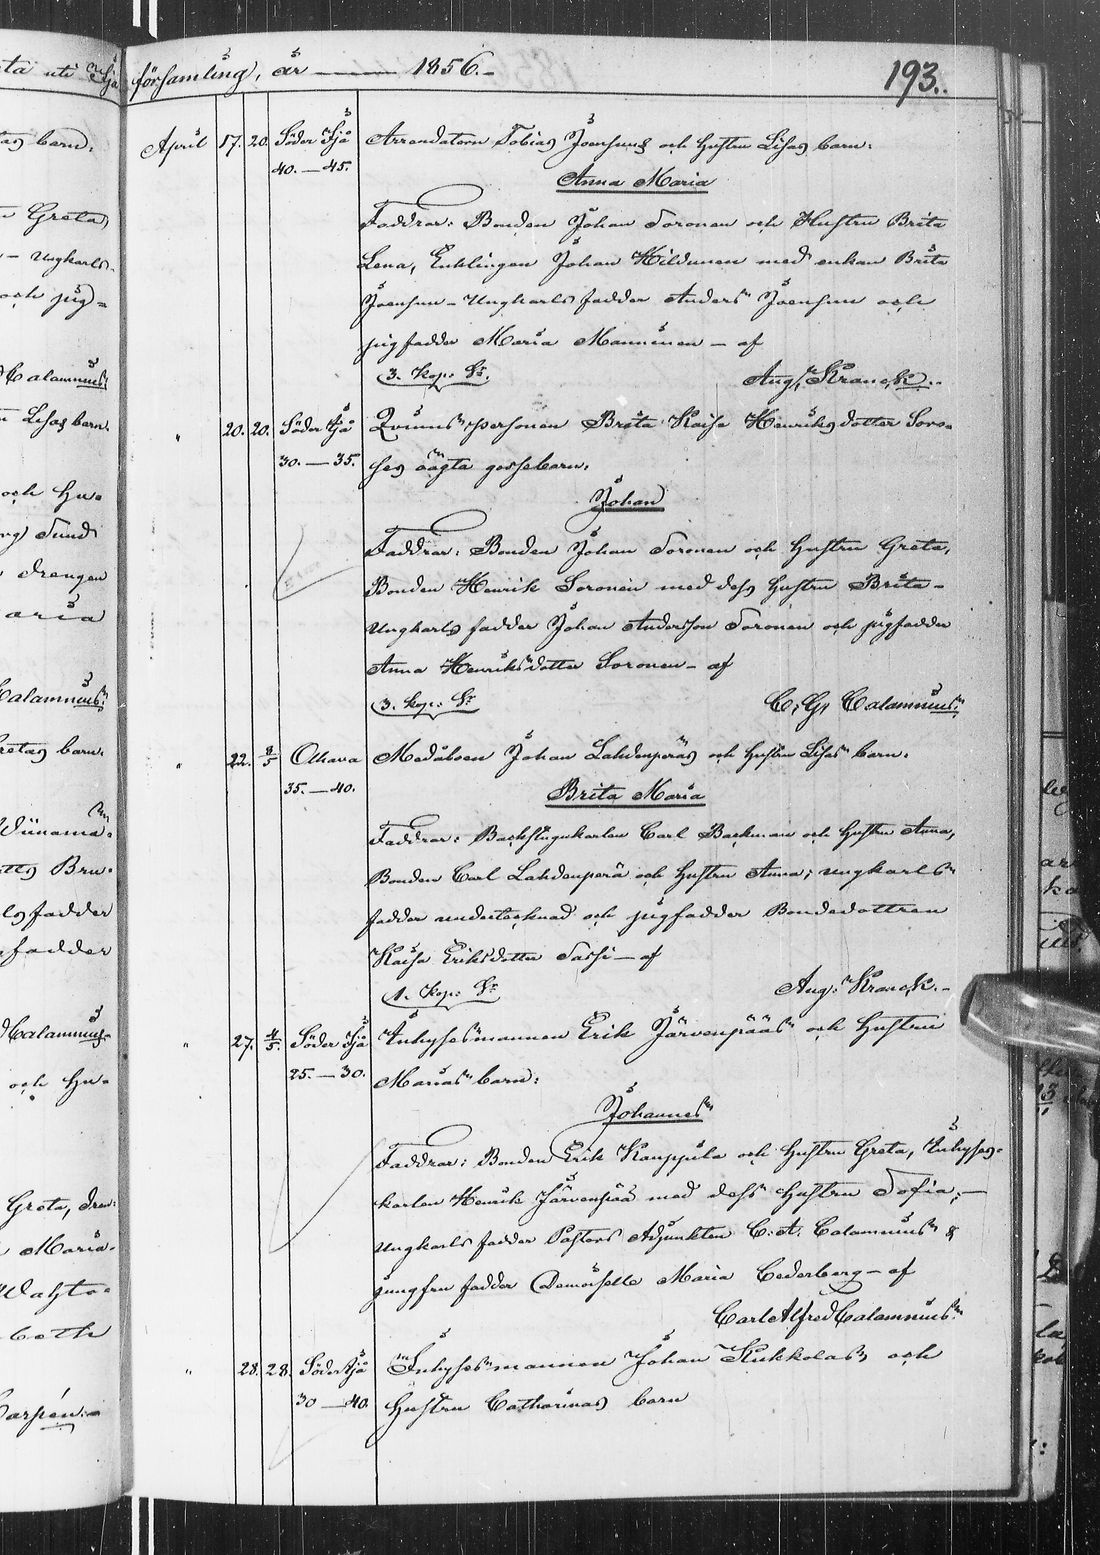 församling, år — 1856.
193.
April 17. 20. Söder Ijå Arrendatorn Tobias Joensuus och Hustru Lisas barn:
40.—45.
Anna Maria
Faddrar: Bonden Johan Soronen och Hustru Brita
Lena, Enklingen Johan Hildunen med enkan Brita
Joensuu – Ungkarls fadder Anders Joensuu och
pigfadder Maria Manninen — af
3. Kop. Sr. Aug. Kranck.
" 20. 20. Söder Ijå Qvinnspersonen Brita Kaisa Henriksdotter Soro-
30.—35. ses oägta gossebarn:
Johan
Faddrar: Bonden Johan Soronen och Hustru Greta,
Bonden Henrik Soronen med dess Hustru Brita –
Ungkarls fadder Johan Andersson Soronen och pigfadder
Anna Henriksdotter Soronen – af
3. Kop. Sr. C. G. Calamnius.
" 22. 8/5 Olhava Johan Lahdenperäs och Hustru Lisas barn:
35.—40.
Brita Maria
Faddrar: Backstugukarlen Carl Backman och Hustru Anna,
Bonden Carl Lahdenperä och Hustru Anna; ungkarls
fadder undertecknad och pigfadder Bondedottren
Kaisa Eriksdotter Tassi — af
1. Kop. Sr. Aug. Kranck.
" 27. 4/5. Söder Ijå Inhysesmannen Erik Järvenpääs och Hustru
25.—30. Marias barn:
Johannes
Faddrar: Bonden Erik Kauppila och Hustru Greta, Inhyses-
karlen Henrik Järvenpää med dess Hustru Sofia; —
Ungkarls fadder Pastors Adjunkten C. A. Calamnius &
jungfru fadder Demoiselle Maria Cederberg — af
Carl Alfred Calamnius.
" 28. 28. Söder Ijå Inhysesmannen Johan Kukkolas och
30 — 40. Hustru Catharinas barn